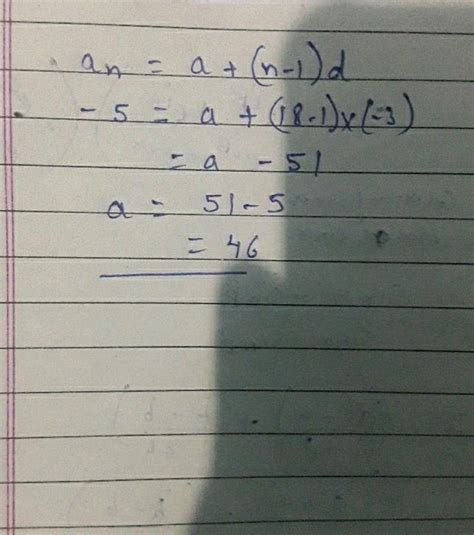 an = a + (n-1)d
- 5 = a + (18-1)x(-3)
= a - 51
a = 51-5
= 46